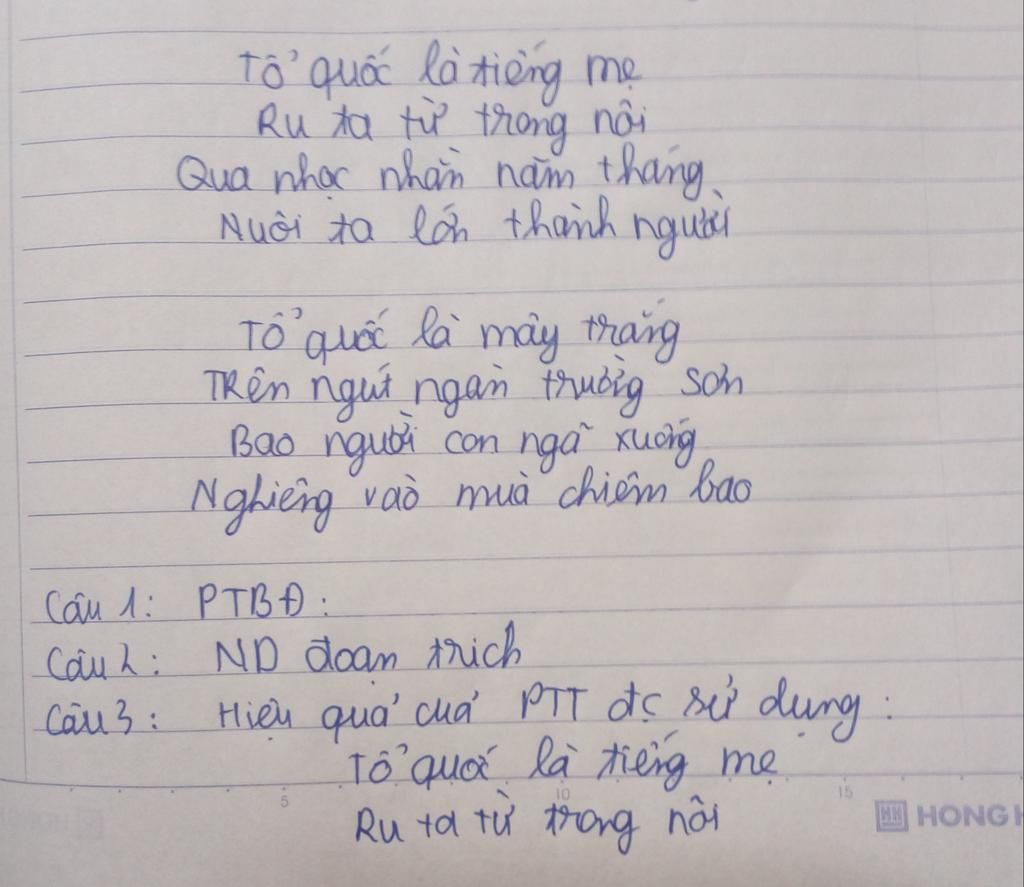 Tổ quốc là tiếng mẹ
Ru ta từ trong nôi
Qua nhọc nhằn năm tháng
Nuôi ta lớn thành người
Tổ quốc là mây trắng
Trên ngút ngàn trường sơn
Bao người con ngã xuống
Nghiêng vào mùa chiêm bao
Câu 1: PTBĐ:
Câu 2: ND đoạn trích
Câu 3: Hiệu quả của PTT đc sử dụng:
Tổ quốc là tiếng mẹ
Ru ta từ trong nôi
5 10 15
HONG H